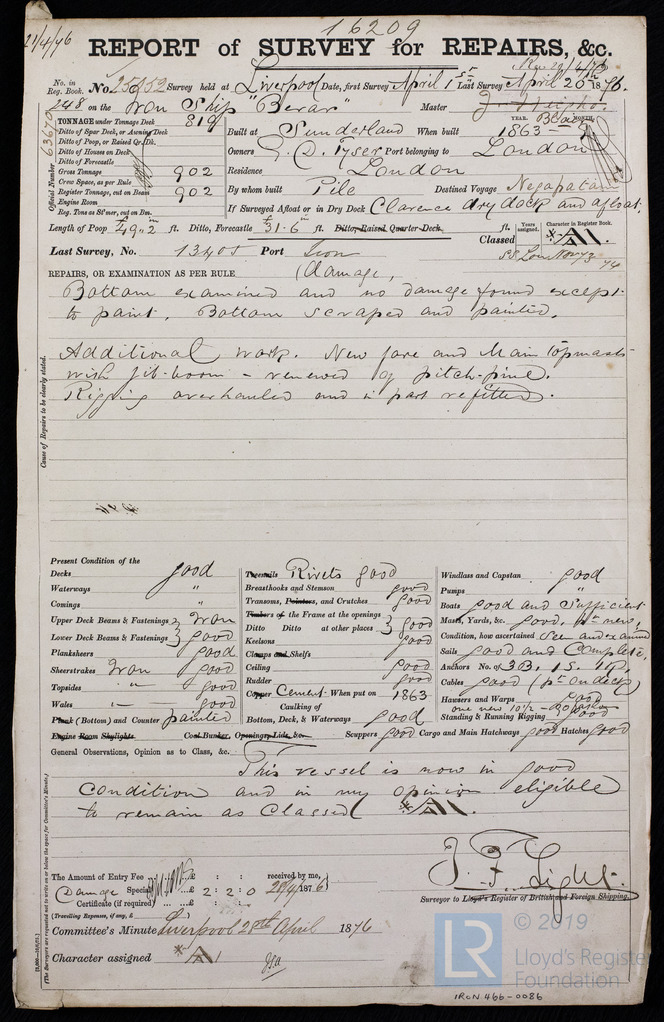 16209
21/4/76
REPORT of SURVEY for REPAIRS, &c.
No. in Reg. Book. No. 25952 Survey held at Liverpool Date, first Survey April 1st Last Survey April 20th 1876.
248 on the Iron Ship "Berar" Master
TONNAGE under Tonnage Deck 819
Ditto of Spar Deck, or Awning Deck
Ditto of Poop, or Raised Qr. Dk.
Ditto of Houses on Deck
Ditto of Forecastle
Gross Tonnage 902
Crew Space, as per Rule
Register Tonnage, cut on Beam 902
Engine Room
Reg. Tons as St'mer, cut on Bm.
Official Number 63670
YEAR. MONTH.
Built at Sunderland When built 1863
Owners G. D. Tyser Port belonging to London
Residence London
By whom built Pile Destined Voyage Negapatam
If Surveyed Afloat or in Dry Dock Clarence dry dock and afloat.
Length of Poop 49.2 ft. Ditto, Forecastle 31.6 ft. Ditto, Raised Quarter Deck. ft.
Years assigned. Character in Register Book.
Classed A1
Last Survey, No. 13405 Port Lon
REPAIRS, OR EXAMINATION AS PER RULE (Damage,
Bottom examined and no damage found except
to paint. Bottom scraped and painted.
Additional work. New fore and Main topmasts
with jib-boom - renewed of pitch-pine.
Rigging overhauled and in part refitted.
Cause of Repairs to be clearly stated.
Present Condition of the
Decks good
Waterways "
Comings "
Upper Deck Beams & Fastenings } Iron
Lower Deck Beams & Fastenings } good
Planksheers good
Sheerstrakes Iron good
Topsides " good
Wales " good
Plank (Bottom) and Counter painted
Engine Room Skylights. Coal Bunker, Openings, Lids, &c.
Treenails Rivets good
Breasthooks and Stemson good
Transoms, Pointers, and Crutches good
Timbers of the Frame at the openings
Ditto Ditto at other places } good
Keelsons good
Clamps and Shelfs
Ceiling good
Rudder good
Copper Cement. When put on 1863
Caulking of
Bottom, Deck, & Waterways good
Windlass and Capstan good
Pumps "
Boats good and sufficient
Masts, Yards, &c. good, pt new,
Condition, how ascertained seen and examd
Sails good and Complete
Anchors No. of 3B, 1S, 1K,
Cables good (pt on deck)
Hawsers and Warps good
Standing & Running Rigging good
Scuppers good Cargo and Main Hatchways good Hatches good
General Observations, Opinion as to Class, &c.
This vessel is now in good
condition and in my opinion eligible
to remain as Classed A1
The Amount of Entry Fee £ : : received by me,
Damage Special £ 2 : 2 : 0 28/4/1876
Certificate (if required)
(Travelling Expenses, if any, £ )
J. F. Light.
Surveyor to Lloyd's Register of British and Foreign Shipping.
Committee's Minute Liverpool 28th April 1876
Character assigned A1
(The Surveyors are requested not to write on or below the space for Committee's Minute.)
LR © 2019
Lloyd's Register
Foundation
IRON 466-0086